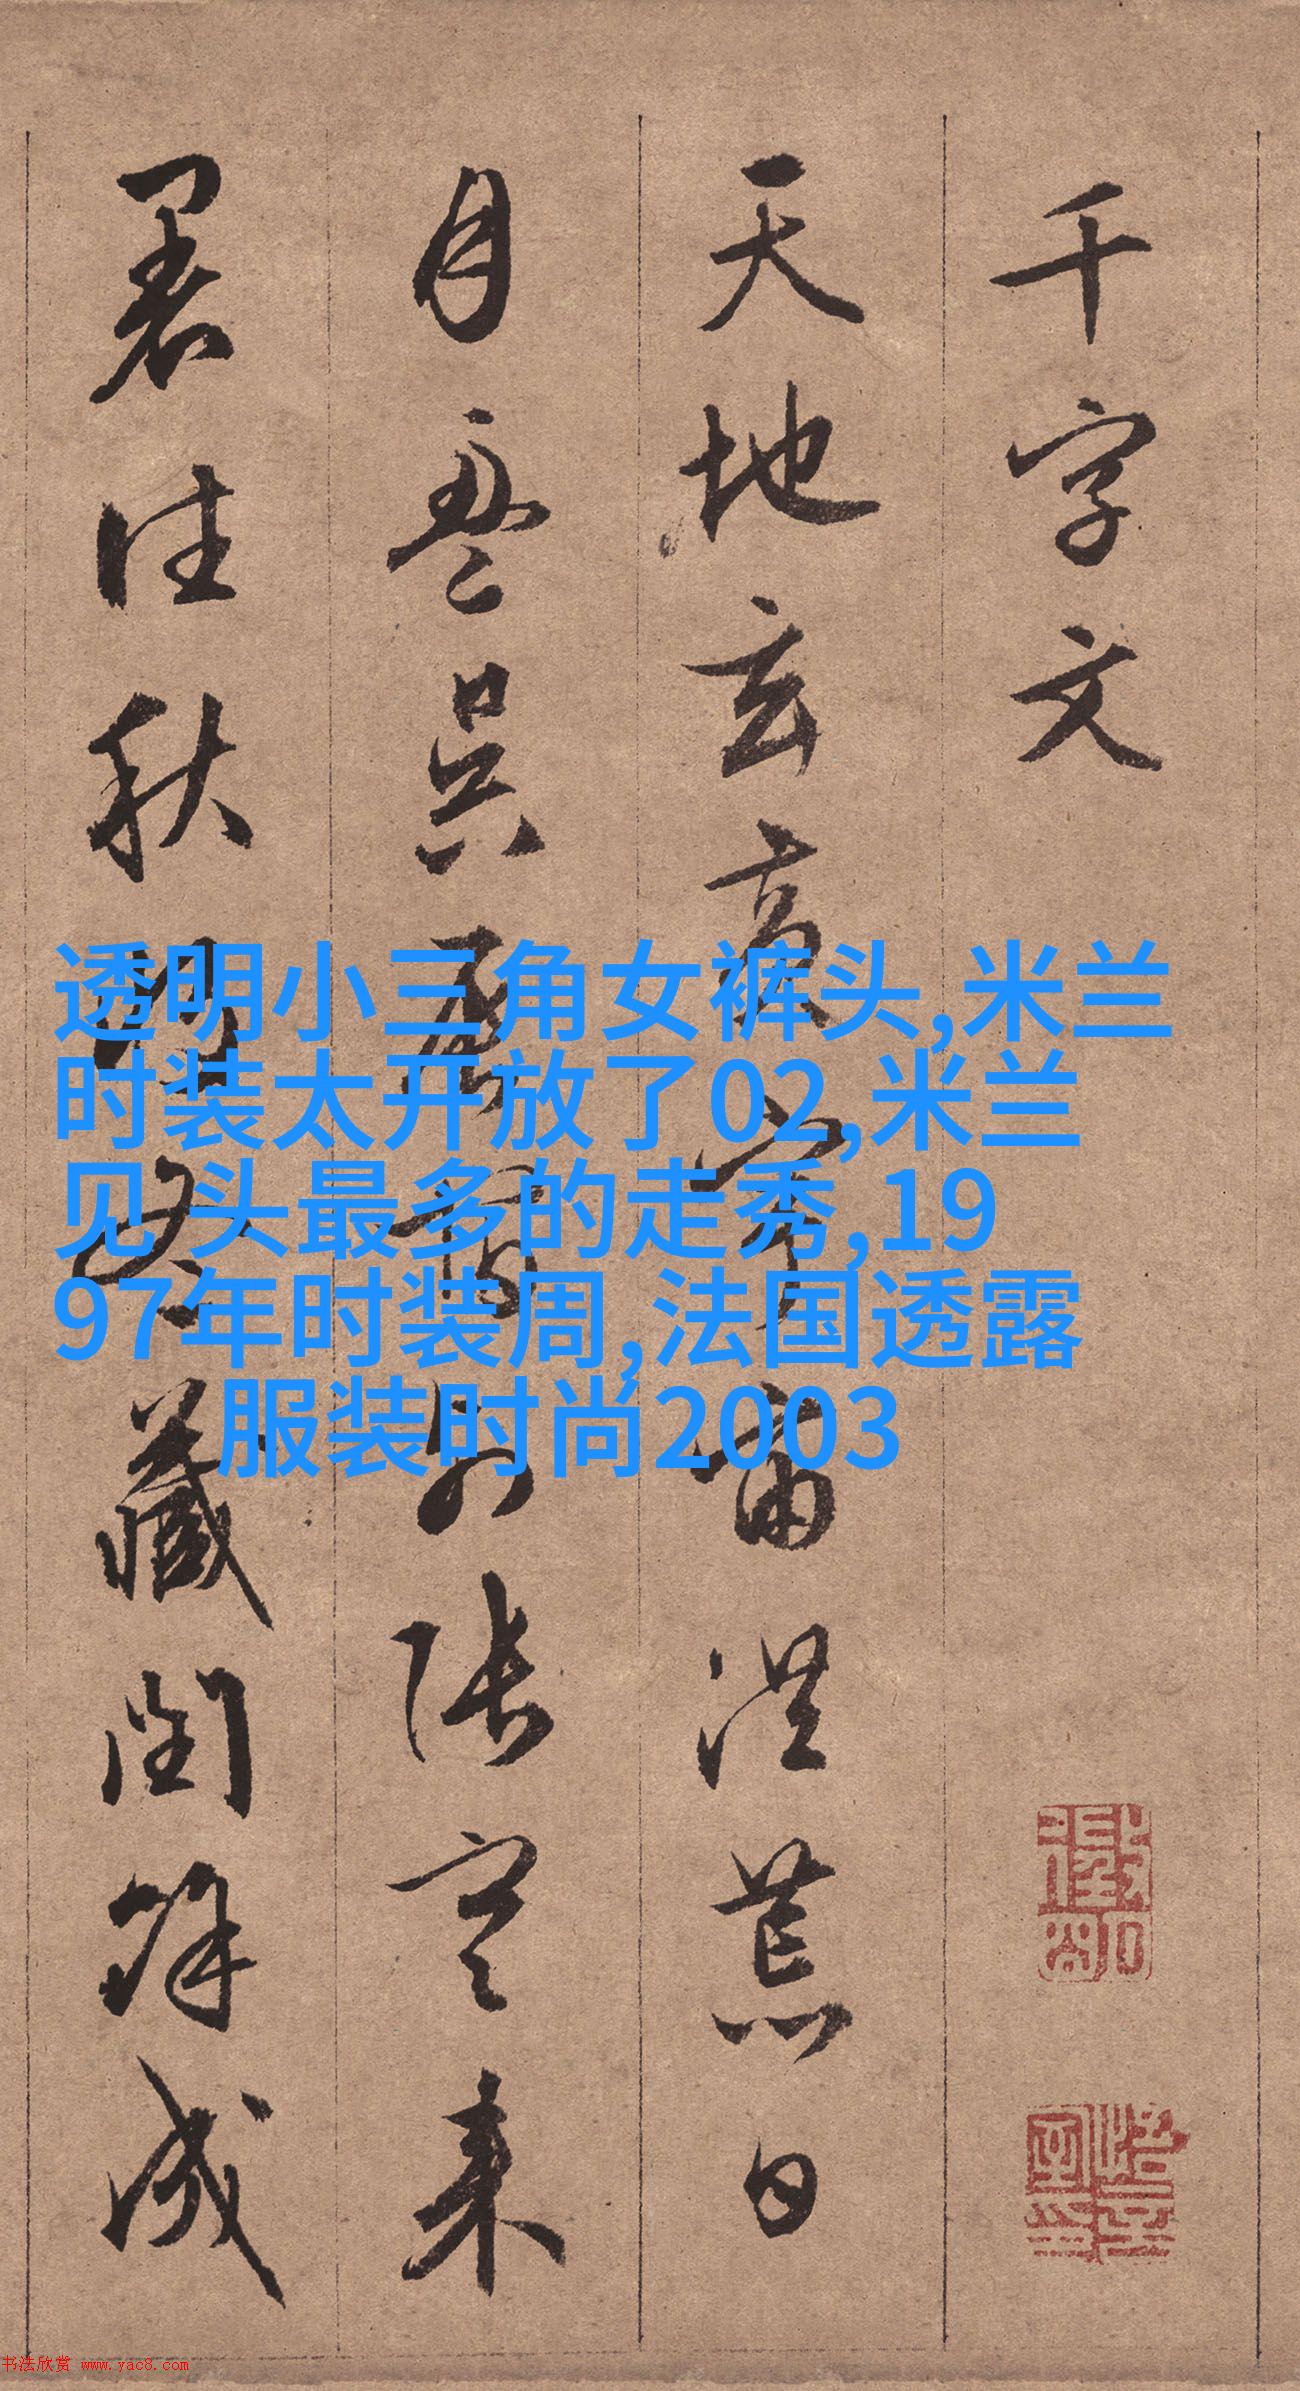 千字文
天地玄黄宇宙洪荒日
月盈昃辰宿列張寒來
暑往秋收冬藏閏餘成
透明小三角女裤头,米兰
时装太开放了02,米兰
见 头最多的走秀,19
97年时装周,法国透露
服装时尚2003
书法欣赏 www.yac8.com